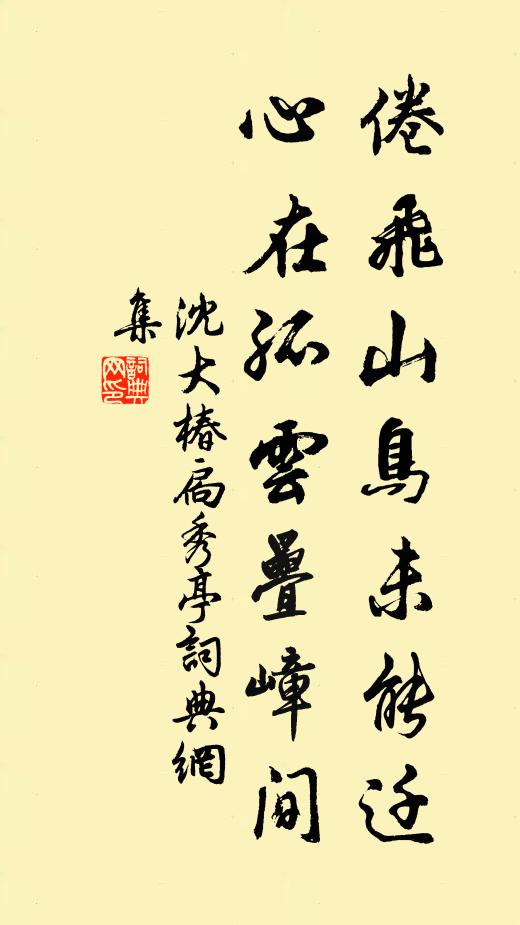 倦飛山鳥未能还
心在孤雲疊嶂間
沈大椿扃秀亭詞典網
集
詞典
网印